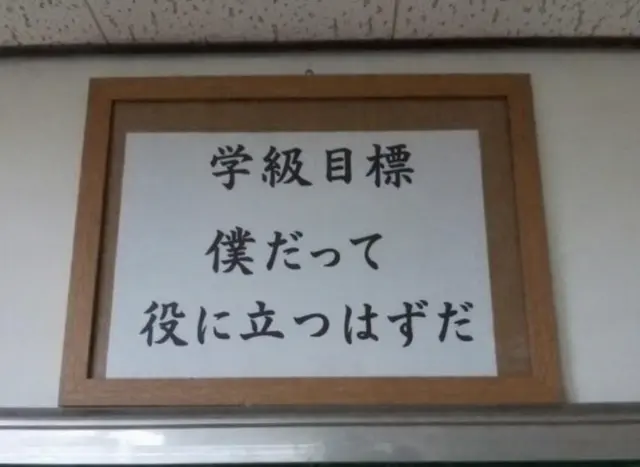 学級目標
僕だって
役に立つはずだ